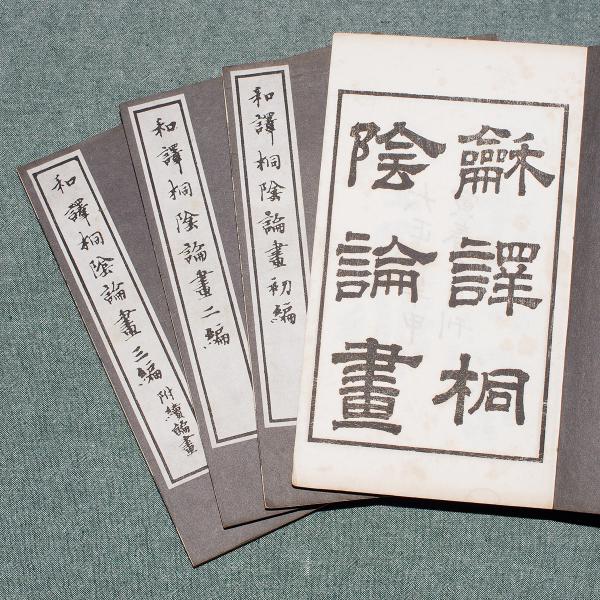 龢譯桐
陰論畫
和譯桐陰論畫初編
和譯桐陰論畫二編
和譯桐陰論畫三編 附續論畫